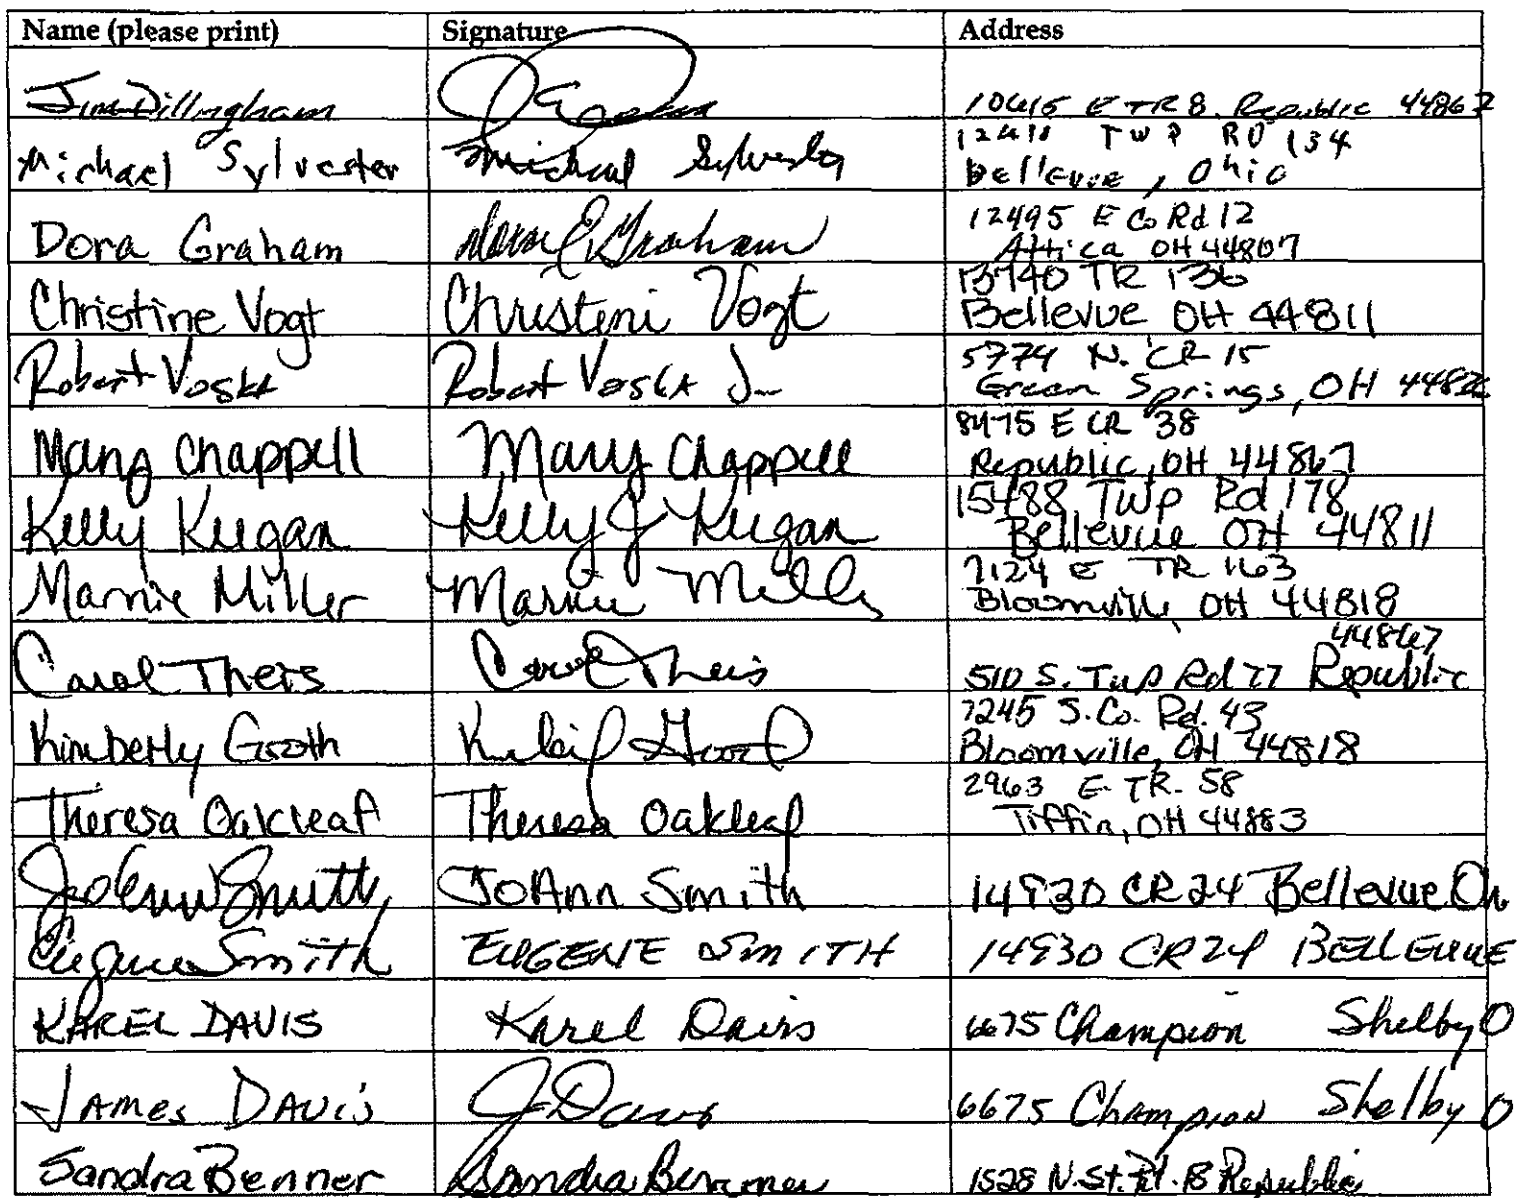 Name (please print) Signature Address
Jim Dillingham 10615 E TR 8. Republic 44867
Michael Sylvester Michael Sylvester 12418 TWP RD 134
Bellevue, Ohio
Dora Graham Dora E. Graham 12495 E Co Rd 12
Attica OH 44807
Christine Vogt Christine Vogt 13740 TR 136
Bellevue OH 44811
Robert Voska Robert Voska Jr 5774 N. CR 15
Green Springs, OH
Mary Chappell Mary Chappell 8475 E CR 38
Republic, OH 44867
Kelly Keegan Kelly J Keegan 15488 Twp Rd 178
Bellevue OH 44811
Marnie Miller Marnie Miller 7124 E TR 163
Bloomville, OH 44818
44867
Carol Theis Carol Theis 510 S. Twp Rd 77 Republic
Kimberly Groth Kimberly Groth 7245 S. Co. Rd. 43
Bloomville, OH 44818
Theresa Oakleaf Theresa Oakleaf 2963 E. TR. 58
Tiffin, OH 44883
JoAnn Smith JoAnn Smith 14930 CR 24 Bellevue Oh
Eugene Smith EUGENE SMITH 14930 CR 24 BELLEVUE
KAREL DAVIS Karel Davis 6675 Champion Shelby O
JAMES DAVIS J Davis 6675 Champion Shelby O
Sandra Benner Sandra Benner 1528 N. St. Rt. 18 Republic